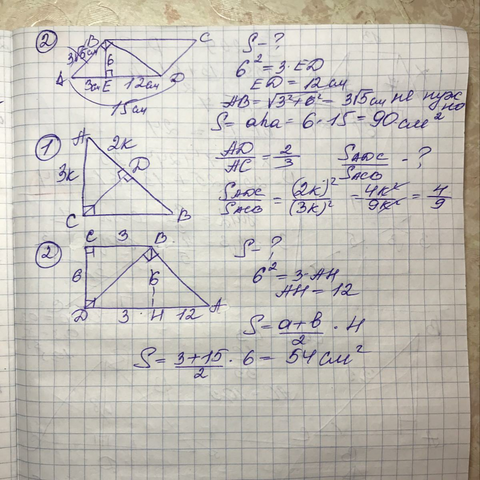 ② B C
3√5см 6
A 3см E 12см D
15см
S - ?
6² = 3 · ED
ED = 12 см
AB = √3²+6² = 3√5 см не нужно
S = aha = 6 · 15 = 90 см²
① A 2к
3к D
C B
AD/AC = 2/3 SADC/SACB - ?
SADC/SACB = (2к)²/(3к)² = 4к²/9к² = 4/9
② C 3 B
6 6
D 3 H 12 A
S - ?
6² = 3 · AH
AH = 12
S = a+b/2 · H
S = 3+15/2 · 6 = 54 см²